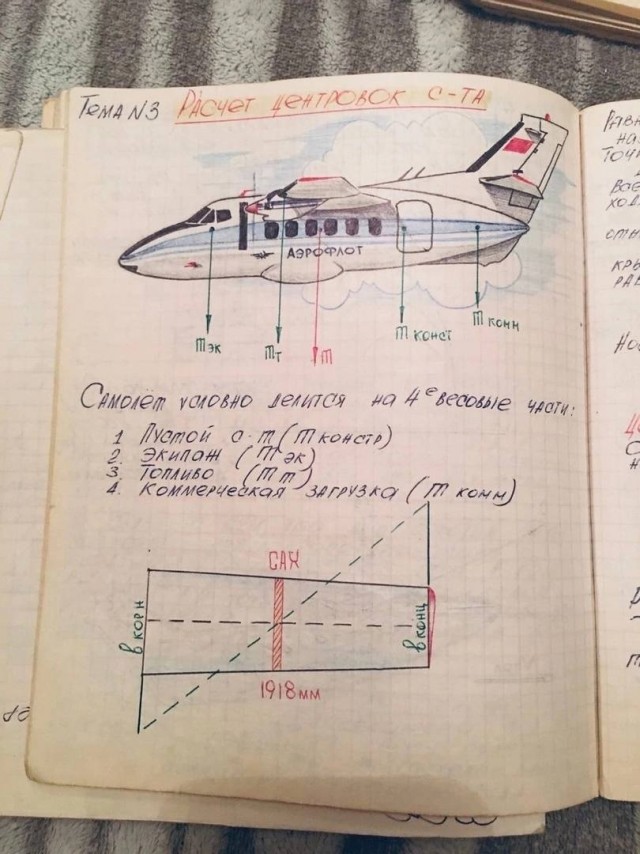 Тема N3 Расчет центровок с-та
АЭРОФЛОТ
m эк
m т
m
m конст
m комм
Самолёт условно делится на 4е весовые части:
1 Пустой с-т (m констр)
2. Экипаж (m эк)
3. Топливо (m т)
4. Коммерческая загрузка (m комм)
САХ
в корн
в конц
1918 мм
Равн
на
точк
ход
кры
рав